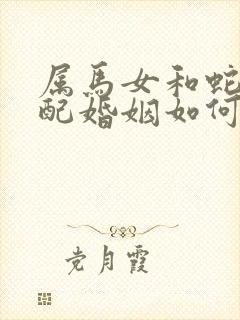 属马女和蛇
配婚姻如何
党月霞